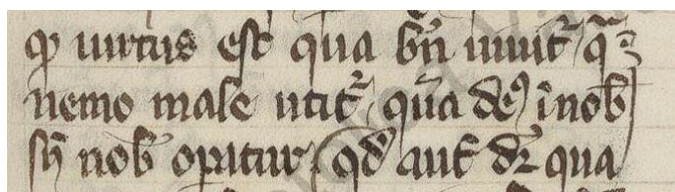 ꝙ uirtus est qua bn̄ uiuit᷑ qͣ
nemo male utit᷑ quā deꝰ ī nob̄
sn̄ nob̄ opatur qd̓ aut̄ dr̄ qua